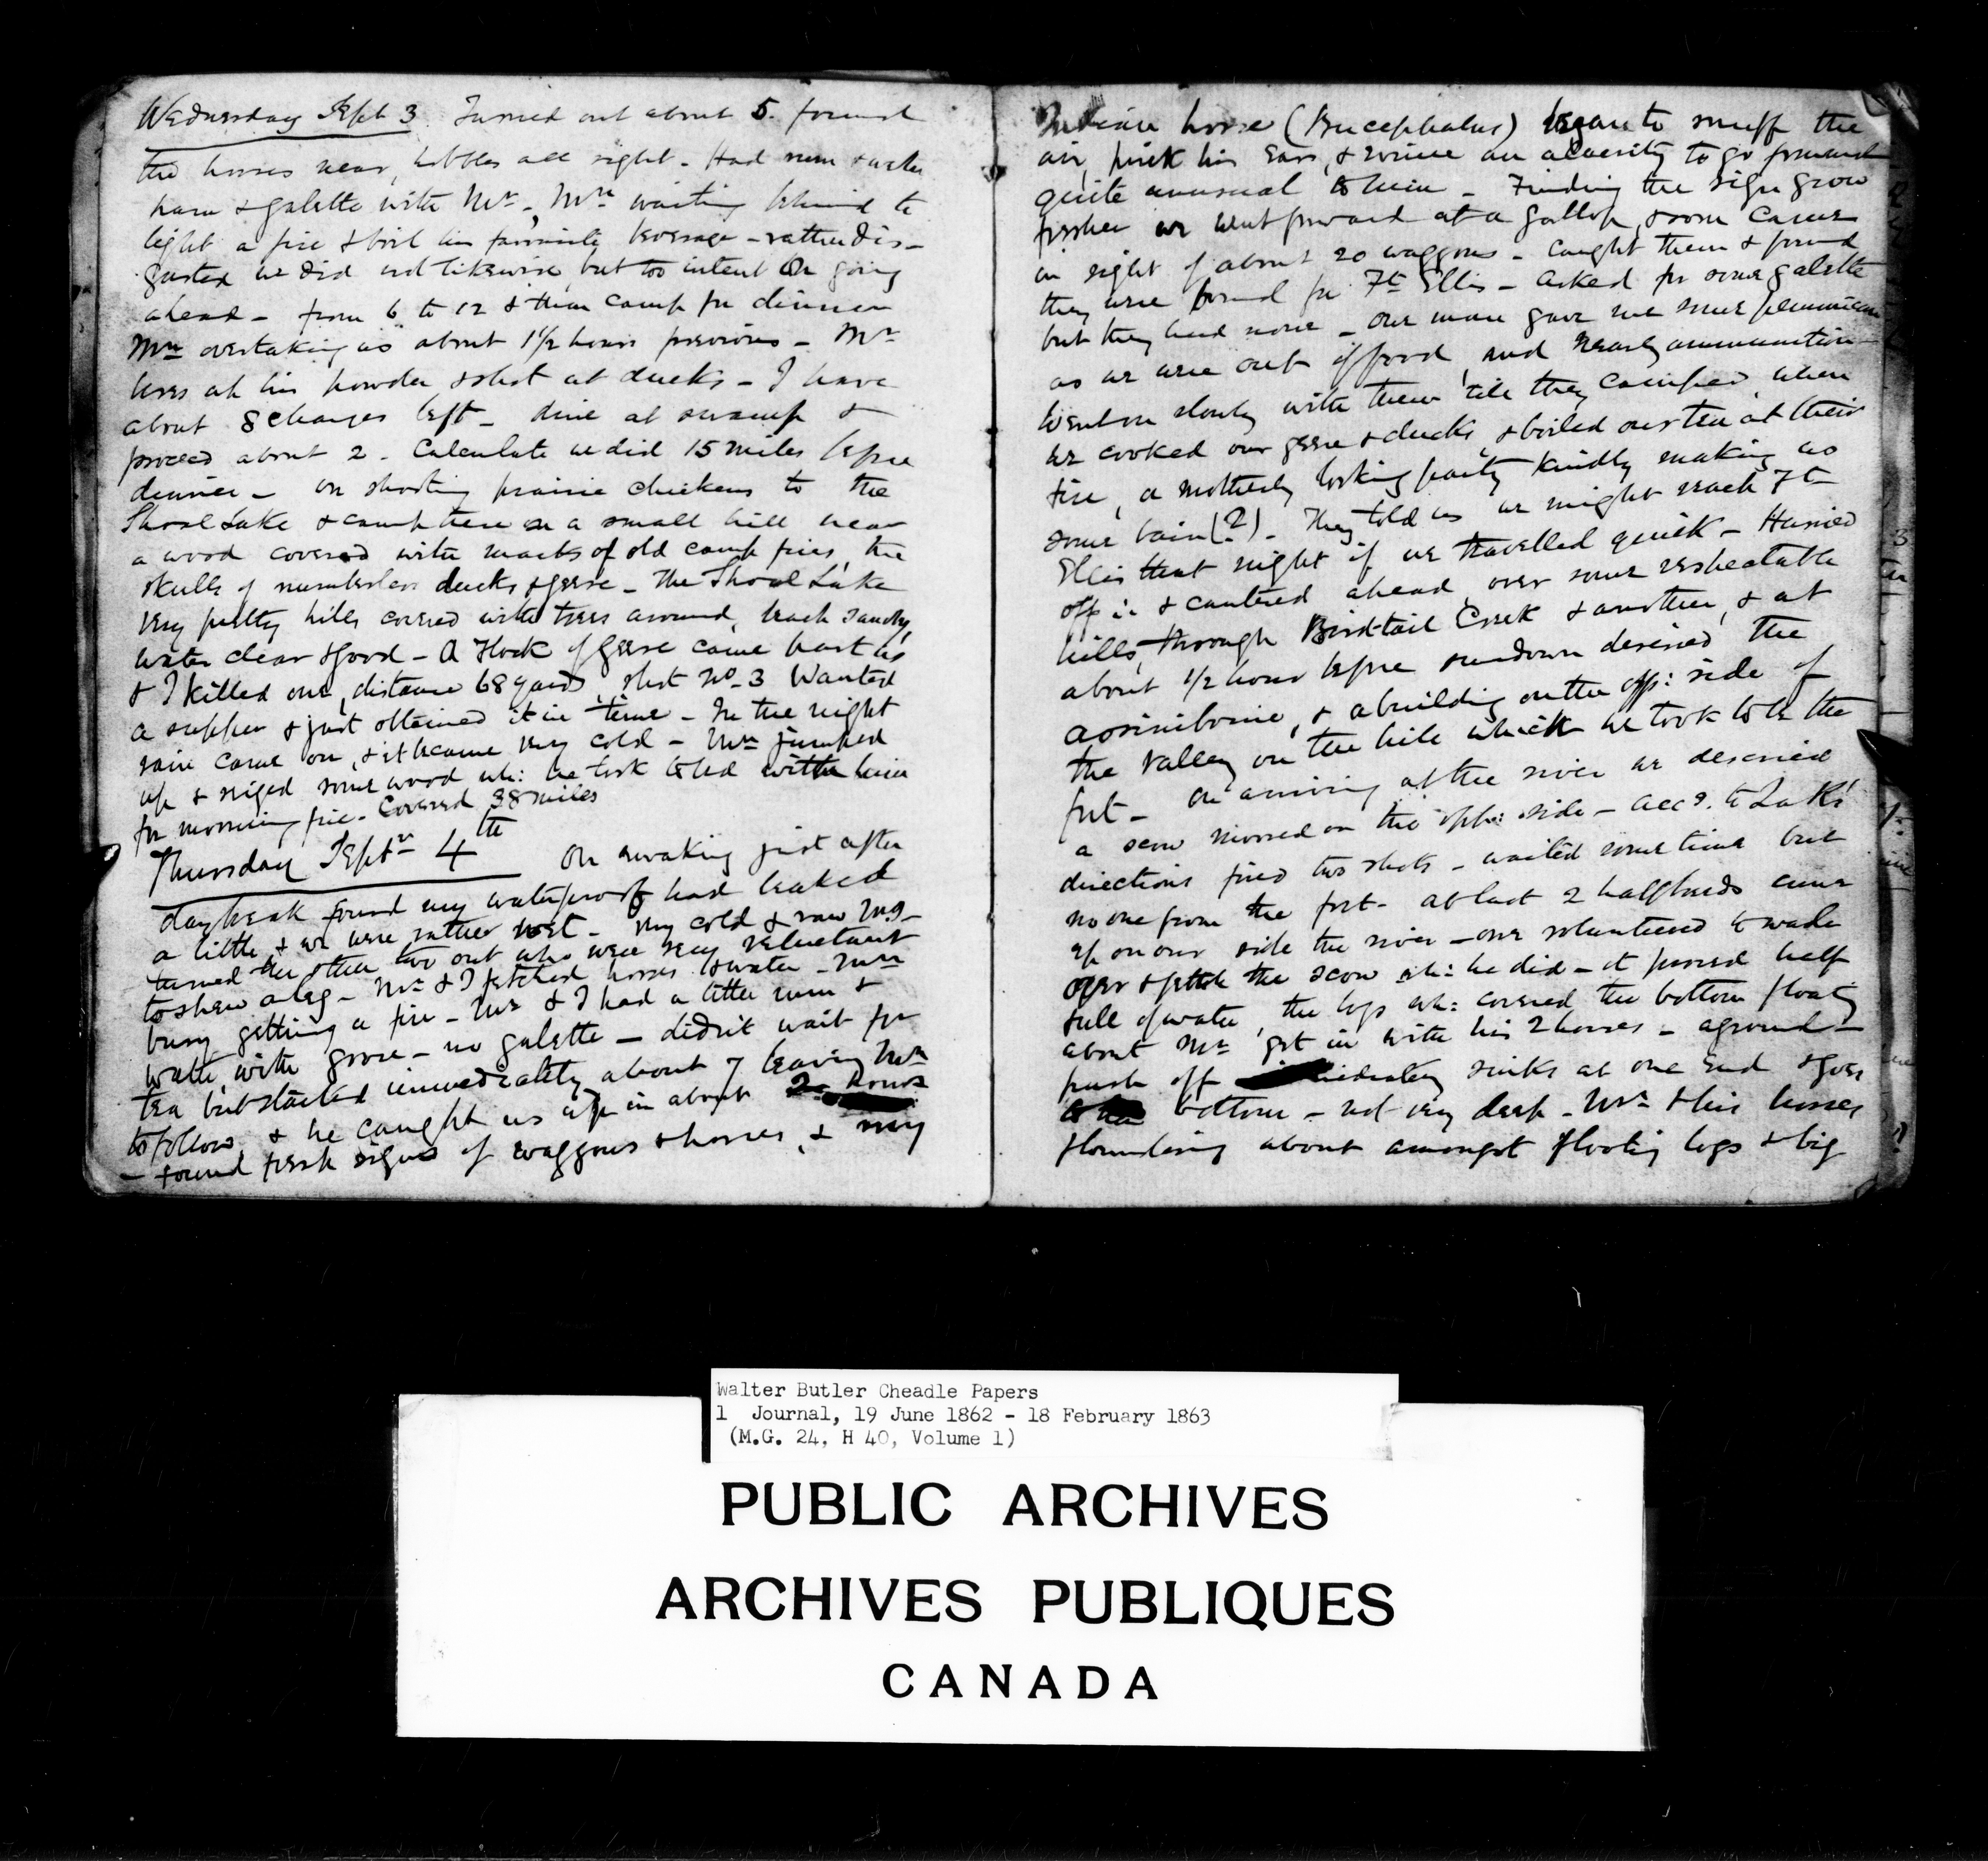 Wednesday Sept 3. Turned out about 5. found
the horses near, hobbles all right. Had rum & water
ham & galette with Mr -, Mn waiting behind to
light a fire & boil his favourite beverage - rather dis-
gusted we did not likewise, but too intent on going
ahead - from 6 to 12 & then camp for dinner
Mn overtaking us about 1½ hours previous - Mr
uses all his powder & shot at ducks - I have
about 8 charges left - dine at swamp &
proceed about 2. Calculate we did 15 miles before
dinner - on shooting prairie chickens to the
Shoal Lake & camp there on a small hill near
a wood covered with marks of old camp fires, the
skulls of numberless ducks & geese - The Shoal Lake
very pretty hills covered with trees around, beach sandy,
water clear & good - A flock of geese came past us
& I killed one, distance 68 yards, shot No. 3 Wanted
a supper & just obtained it in time - In the night
rain came on, & it became very cold - Mn jumped
up & seized some wood wh: he took to bed with him
for morning fire. Covered 38 miles
Thursday Septr 4th On awaking just after
daybreak found my waterproof had leaked
a little & we were rather wet - very cold & raw mg -
turned the other two out who were very reluctant
to shew a leg - Mr & I fetched horses to water - Mn
busy getting a fire - Mr & I had a little rum &
water, with goose - no galette - didn't wait for
tea but started immediately about 7 leaving Mn
to follow & he caught us up in about 2 hours
- found fresh signs of waggons & horses, & my
Indian horse (Bucephalus) began to snuff the
air, prick his ears, & evince an alacrity to go forward
quite unusual to him - Finding the sign grow
fresher we went forward at a gallop, & soon came
in sight of about 20 waggons - caught them & found
they were bound for Ft Ellis - Asked for some galette
but they had none - one man gave me some pemmican
as we were out of food, and nearly ammunition -
Went on slowly with them till they camped, when
we cooked our geese & ducks, & boiled our tea at their
fire, a motherly looking party kindly making us
some bain(?). They told us we might reach Ft
Ellis that night if we travelled quick - Hurried
off :. & cantered ahead, over some respectable
hills, through Birdtail Creek & another, & at
about ½ hour before sundown descried the
Assiniboine, & a building on the opp: side of
the valley on the hill which we took to be the
fort - On arriving at the river we descried
a scow moored on the opp: side - accg. to La R's
directions fired two shots - waited some time but
no one from the fort - at last 2 halfbreeds came
up on our side the river - one volunteered to wade
over & fetch the scow wh: he did - it proved half
full of water, the logs wh: covered the bottom floating
about Mr got in with his 2 horses - aground -
push off immediately sinks at one end & goes
to bottom - not very deep - Mr & his horses
floundering about amongst floating logs & big
Walter Butler Cheadle Papers
1 Journal, 19 June 1862 - 18 February 1863
(M.G. 24, H 40, Volume 1)
PUBLIC ARCHIVES
ARCHIVES PUBLIQUES
CANADA